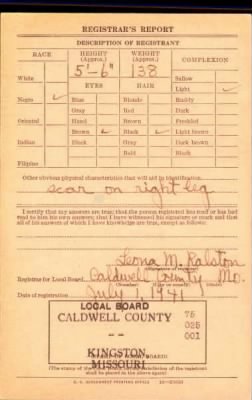 REGISTRAR'S REPORT
DESCRIPTION OF REGISTRANT
RACE HEIGHT (Approx.) WEIGHT (Approx.) COMPLEXION
5'-6" 138
White Sallow
EYES HAIR Light ✓
Negro ✓ Blue Blonde Ruddy
Gray Red Dark
Oriental Hazel Brown Freckled
Brown ✓ Black ✓ Light brown
Indian Black Gray Dark brown
Bald Black
Filipino
Other obvious physical characteristics that will aid in identification
scar on right leg
I certify that my answers are true; that the person registered has read or has had
read to him his own answers; that I have witnessed his signature or mark and that
all of his answers of which I have knowledge are true, except as follows:
Leona M. Ralston
(Signature of registrar)
Registrar for Local Board Caldwell County Mo.
(Number) (City or county) (State)
Date of registration July 1, 1941
LOCAL BOARD
CALDWELL COUNTY 75
025
-- 001
KINGSTON
MISSOURI
(The stamp of the
shall be placed in the above space)
U. S. GOVERNMENT PRINTING OFFICE